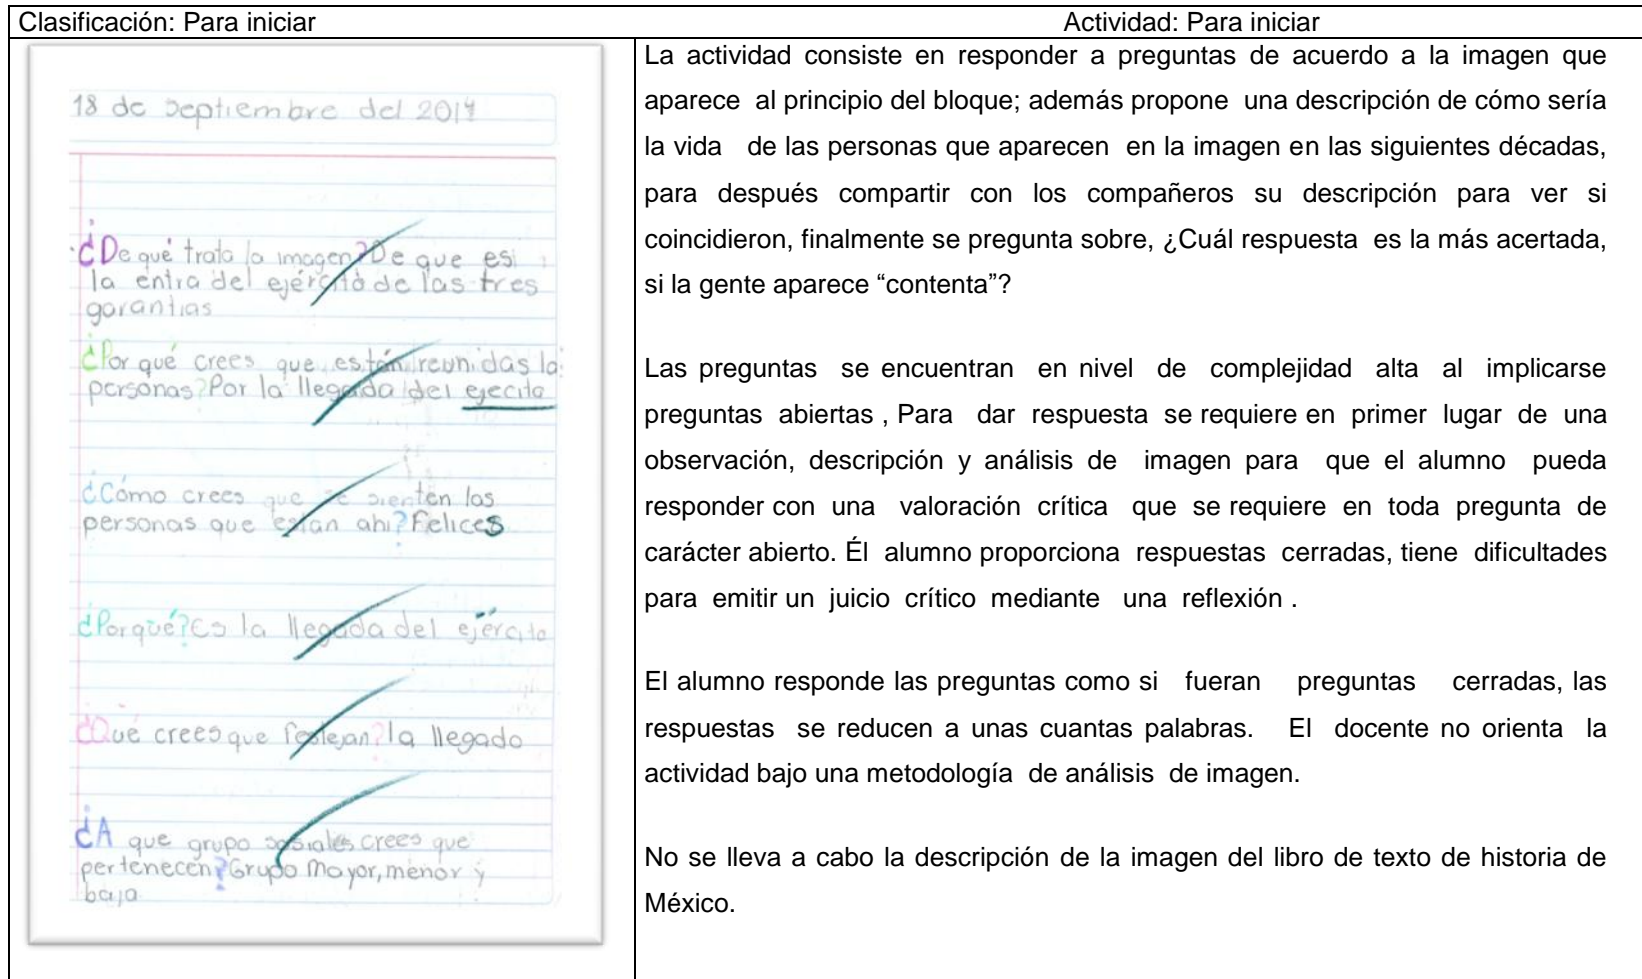 Clasificación: Para iniciar Actividad: Para iniciar
18 de Septiembre del 2014
¿De qué trata la imagen? De que es
la entra del ejército de las tres
garantias
¿Por qué crees que están reunidas la
personas? Por la llegada del ejecito
¿Cómo crees que se sienten las
personas que estan ahi? Felices
¿Porqué? Es la llegada del ejército
¿Qué crees que festejan? la llegado
¿A que grupo sosiales crees que
pertenecen? Grupo Mayor, menor y
baja
La actividad consiste en responder a preguntas de acuerdo a la imagen que
aparece al principio del bloque; además propone una descripción de cómo sería
la vida de las personas que aparecen en la imagen en las siguientes décadas,
para después compartir con los compañeros su descripción para ver si
coincidieron, finalmente se pregunta sobre, ¿Cuál respuesta es la más acertada,
si la gente aparece “contenta”?
Las preguntas se encuentran en nivel de complejidad alta al implicarse
preguntas abiertas , Para dar respuesta se requiere en primer lugar de una
observación, descripción y análisis de imagen para que el alumno pueda
responder con una valoración crítica que se requiere en toda pregunta de
carácter abierto. Él alumno proporciona respuestas cerradas, tiene dificultades
para emitir un juicio crítico mediante una reflexión .
El alumno responde las preguntas como si fueran preguntas cerradas, las
respuestas se reducen a unas cuantas palabras. El docente no orienta la
actividad bajo una metodología de análisis de imagen.
No se lleva a cabo la descripción de la imagen del libro de texto de historia de
México.